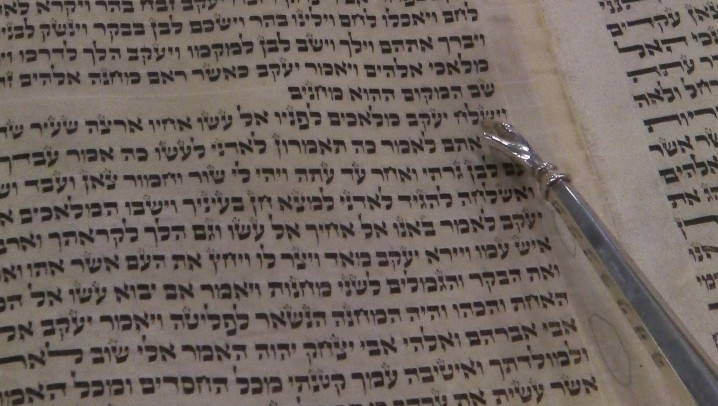 יעקב זבח בהר ויקרא
לחם ויאכלו לחם וילינו בהר וישכם לבן בבקר וינשק לבני
ויברך אתהם וילך וישב לבן למקמו ויעקב הלך לדרכו
מלאכי אלהים ויאמר יעקב כאשר ראם מחנה אלהים
שם המקום ההוא מחנים
וישלח יעקב מלאכים לפניו אל עשו אחיו ארצה שעיר
אתם לאמר כה תאמרון לאדני לעשו כה אמר עבדך
לבן גרתי ואחר עד עתה ויהי לי שור וחמור צאן ועבד
ואשלחה להגיד לאדני למצא חן בעיניך וישבו המלאכים
יעקב לאמר באנו אל אחיך אל עשו וגם הלך לקראתך
איש עמו ויירא יעקב מאד ויצר לו ויחץ את העם אשר אתו
ואת הבקר והגמלים לשני מחנות ויאמר אם יבוא עשו אל
האחת והכהו והיה המחנה הנשאר לפליטה ויאמר יעקב
אבי אברהם ואלהי אבי יצחק יהוה האמר אלי שוב
ולמולדתך ואיטיבה עמך קטנתי מכל החסדים ומכל
אשר עשית את